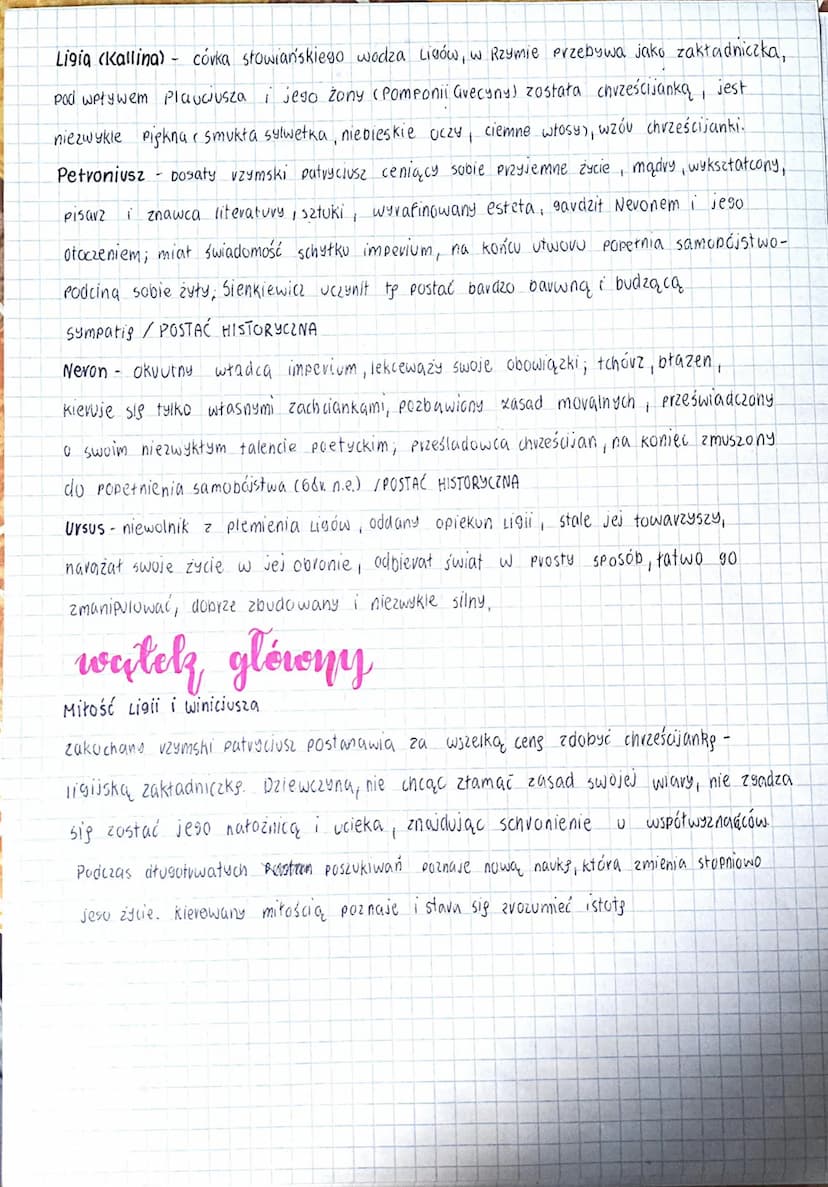 Ligia (Kallina) - córka słowiańskiego wodza Ligów, w Rzymie przebywa jako zakładniczka,
pod wpływem Plauciusza i jego żony (Pomponii Grecyny) została chrześcijanką, jest
niezwykle piękna (smukła sylwetka, niebieskie oczy, ciemne włosy), wzór chrześcijanki.
Petroniusz - bogaty rzymski patrycjusz ceniący sobie przyjemne życie, mądry, wykształcony,
pisarz i znawca literatury, sztuki, wyrafinowany esteta, gardził Neronem i jego
otoczeniem; miał świadomość schyłku imperium, na końcu utworu popełnia samobójstwo-
podcina sobie żyły; Sienkiewicz uczynił tę postać bardzo barwną i budzącą
sympatię / POSTAĆ HISTORYCZNA
Neron - okrutny władca imperium, lekceważy swoje obowiązki; tchórz, błazen,
kieruje się tylko własnymi zachciankami, pozbawiony zasad moralnych, przeświadczony
o swoim niezwykłym talencie poetyckim; prześladowca chrześcijan, na koniec zmuszony
do popełnienia samobójstwa (68r. n.e.) /POSTAĆ HISTORYCZNA
Ursus - niewolnik z plemienia Ligów, oddany opiekun Ligii, stale jej towarzyszy,
narażał swoje życie w jej obronie, odbierał świat w prosty sposób, łatwo go
zmanipulować, dobrze zbudowany i niezwykle silny.
wątek główny
Miłość Ligii i Winiciusza
zakochany rzymski patrycjusz postanawia za wszelką cenę zdobyć chrześcijankę -
ligijską zakładniczkę. Dziewczyna, nie chcąc złamać zasad swojej wiary, nie zgadza
się zostać jego nałożnicą i ucieka, znajdując schronienie u współwyznawców
Podczas długotrwałych poszukiwań poznaje nową naukę, która zmienia stopniowo
jego życie. Kierowany miłością poznaje i stara się zrozumieć istotę